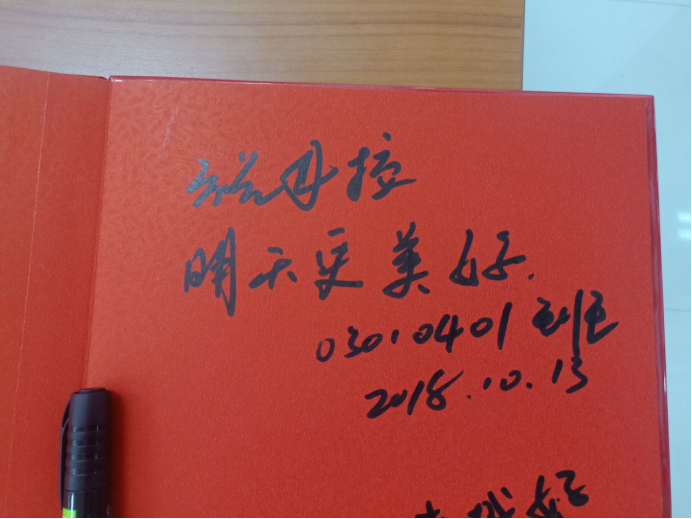 祝母校
明天更美好.
0301.0401班
2018.10.13